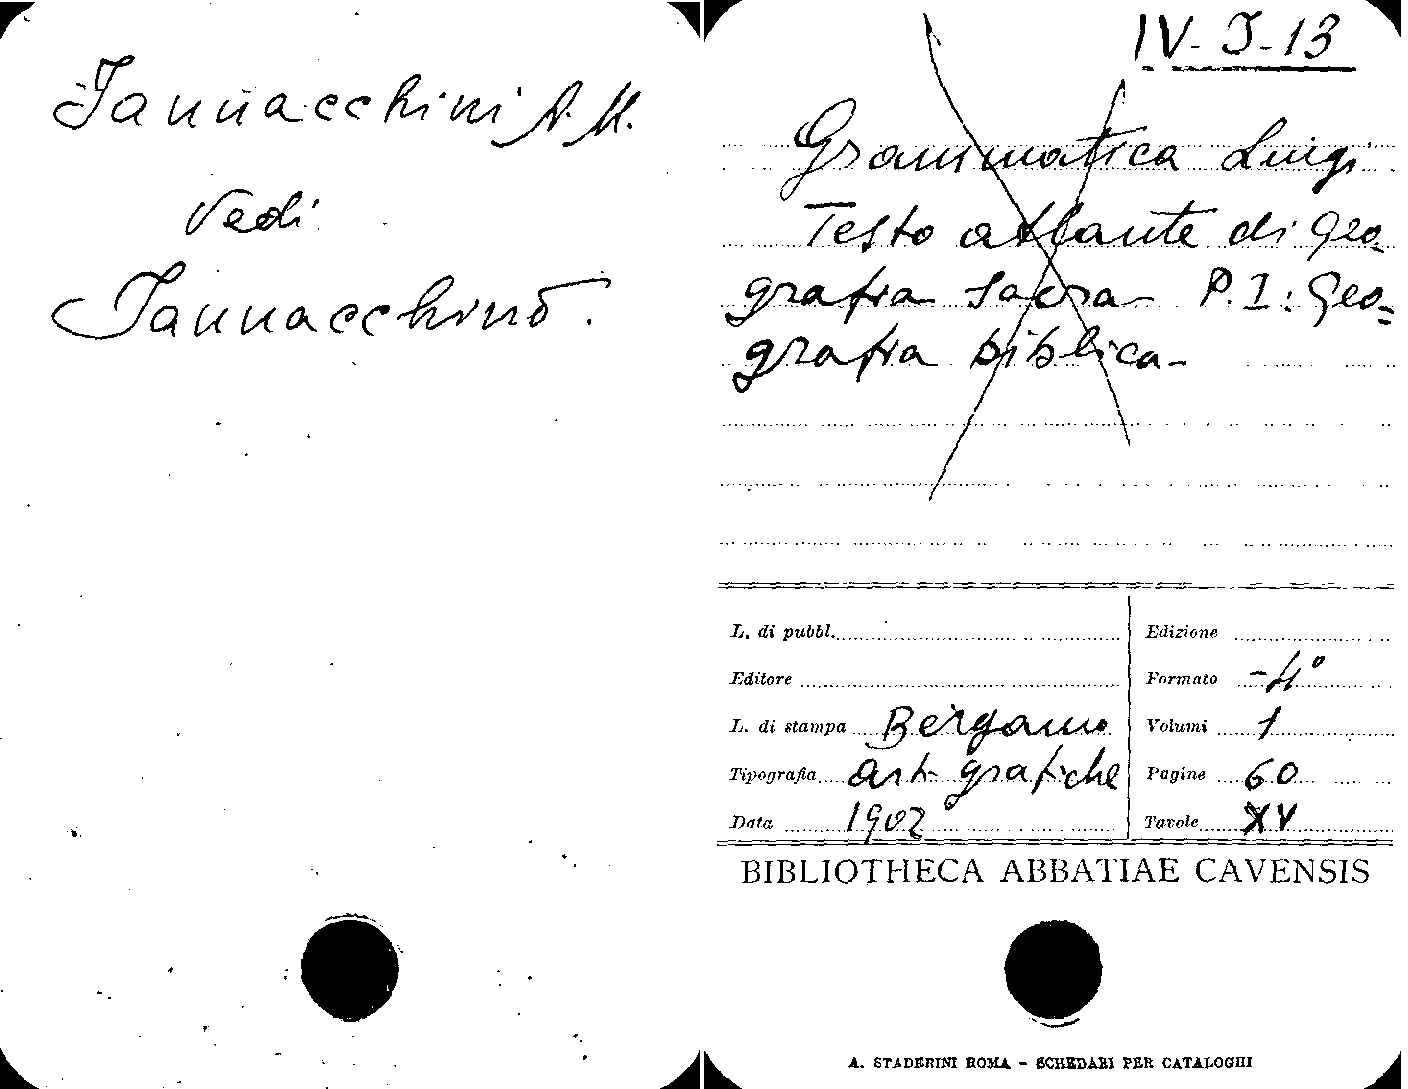 Iannacchini A. M.
Vedi
Iannacchino.
IV-I-13
Grammatica Luigi
Testo atlante di Geo-
grafia sacra - P. I: Geo=
grafia biblica -
L. di pubbl.
Edizione
Editore
Formato -4°
L. di stampa Bergamo
Volumi 1
Tipografia arti grafiche
Pagine 60
Data 1902
Tavole XV
BIBLIOTHECA ABBATIAE CAVENSIS
A. STADERINI ROMA - SCHEDARI PER CATALOGHI